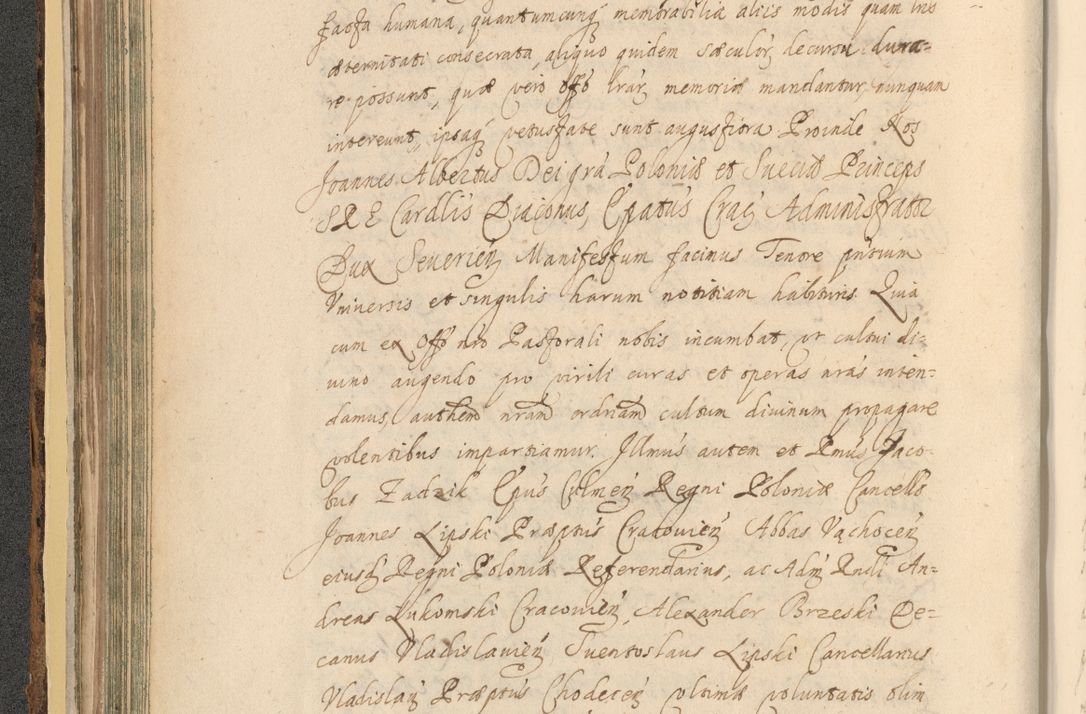 facta humana, quantumcunq; memorabilia aliis modis quam lris
æternitati consecrata, aliquo quidem sæculor; decursu dura-
re possunt, quæ vero offo lrar; memoriæ mandantur nunquam
intereunt, ipsaq; vetustate sunt augustiora Proinde Nos
Joannes Albertus Dei gra Poloniæ et Sueciæ Princeps
SRE Cardlis Diaconus, Epatus Crac; Administrator
Dux Severien; Manifestum facimus Tenore pntium
Vniversis et singulis harum notitiam habituris. Quia
cum ex offo nro Pastorali nobis incumbat, vt cultui di-
uino augendo pro virili curas et operas nras inten-
damus, authem nram ordriam cultum divinum propagare
volentibus impartiamur. Illmus autem et Rmus Jaco-
bus Zadzik Epus Culmen; Regni Poloniæ Cancells
Joannes Lipski Præptus Cracovien; Abbas Vąchocen;
eiusd; Regni Poloniæ Referendarius, ac Adm; Rndi An-
dreas Lukomski Cracovien; Alexander Brzeski De-
canus Vladislavien; Suentoslaus Lipski Cancellarius
Vladislav; Præptus Chodecen; vltimæ voluntatis olim